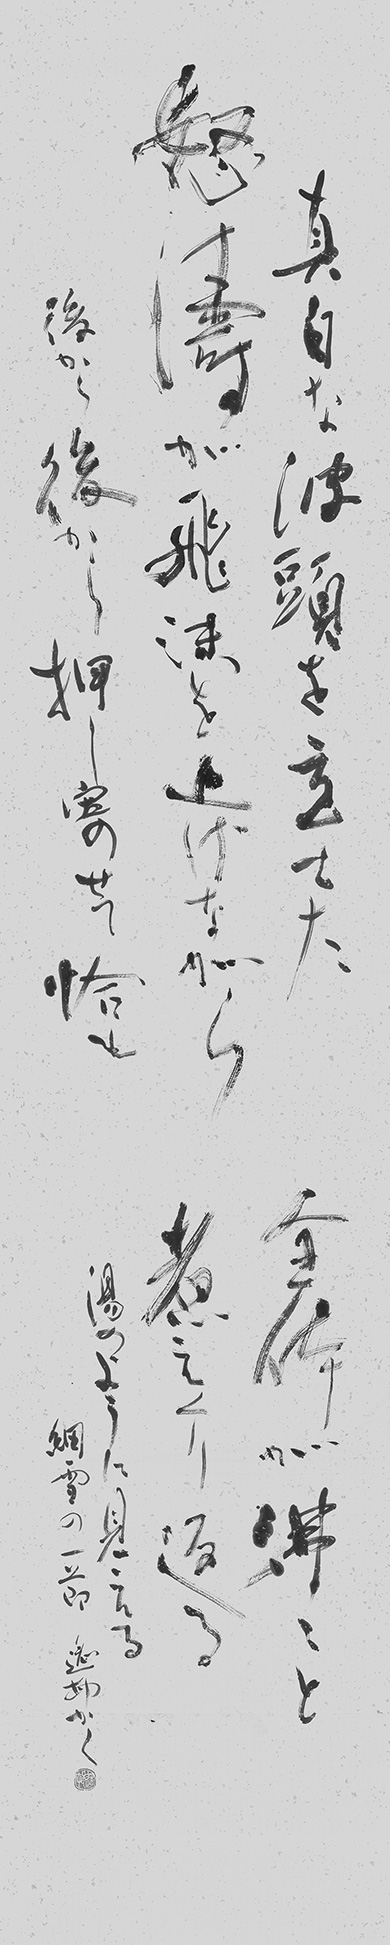 真白な波頭を立てた
怒濤が飛沫を上げながら
後から後から押し寄せて恰も
全体が沸こと
煮えくり返る
湯のように見える
細雪の一節 かく